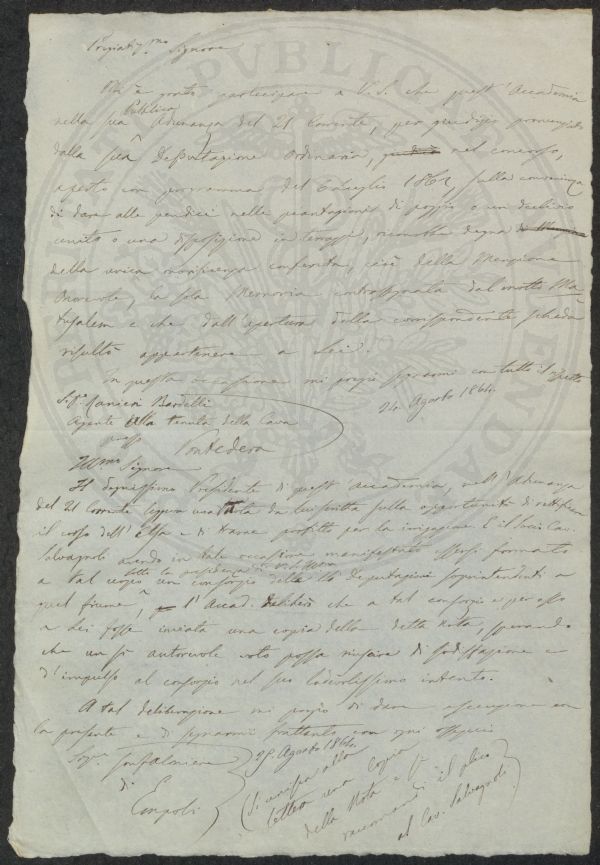 Pregiatissmo Signore
Mi è grato partecipare a V.S. che quest'Accademia
nella sua Pubblica Adunanza del 21 Corrente, per giudizio pronunziato
dalla sua Deputazione Ordinaria, nel concorso,
aperto con programma del 6 Luglio 1862, sulla convenienza
di dare alle pendici nelle piantagioni di poggio o un declivio
unito o una disposizione in terrazzi, riconobbe degna
della unica onorificenza conferita, cioè della Menzione
Onorevole, la sola Memoria contrassegnata dal motto Ma
tusalem e che dall'apertura della corrispondente scheda
risultò appartenere a Lei.
In questa occasione mi pregio segnarmi con tutto il rispetto
24 Agosto 1864.
Sigr Ranieri Bardelli
Agente alla tenuta della Cava
presso
Pontedera
Illmo Signore
Il degnissimo Presidente di quest'Accademia, nell'Adunanza
del 21 Corrente leggeva una Nota da lui scritta sulla opportunità di rettificare
il corso dell'Elsa e di trarne profitto per la irrigazione e il Socio Cav.
Salvagnoli avendo in tale occasione manifestato essersi formato
sotto la presidenza di V.S. Illma
a tal uopo un consorzio delle Deputazioni soprintendenti a
quel fiume, l'Accad. deliberò che a tal consorzio e per esso
a Lei fosse inviata una copia della detta Nota, sperando
che un sì autorevole voto possa riuscire di sodisfazione e
d'impulso al consorzio nel suo lodevolissimo intento.
A tal deliberazione mi pregio di dare esecuzione con
la presente e di segnarmi frattanto con ogni ossequio
25 Agosto 1864.
Sigr Gonfaloniere
di
Empoli
(Si unisca alla
lettera una copia
della Nota e si
raccomandi il plico
al Cav. Salvagnoli)